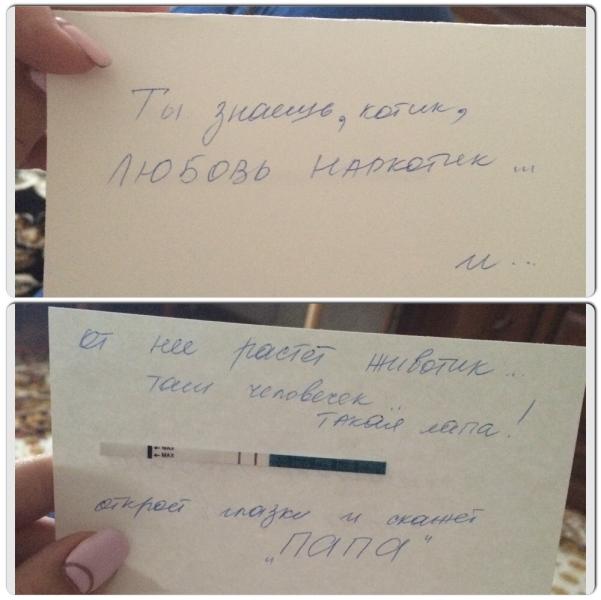 Ты знаешь, котик,
ЛЮБОВЬ НАРКОТИК ...
и ...
от нее растёт животик ...
там человечек
такая лапа!
← MAX
← MAX
откроет глазки и скажет
„ПАПА"